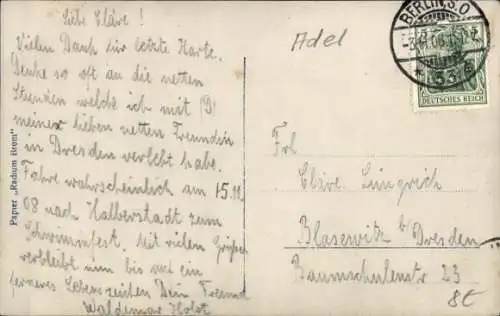 Liebe Cläre!
Vielen Dank für letzte Karte.
Denke so oft an die netten
Stunden welche ich mit D'
meiner lieben netten Freundin
in Dresden verlebt habe.
Fahre wahrscheinlich am 15.11.
08 nach Halberstadt zum
Schwimmfest. Mit vielen Grüßen
verbleibt nun bis auf ein
ferneres Lebenszeichen Dein Freund
Waldemar Holst
Papier „Radium Brom"
Adel
BERLIN S.O.
33
DEUTSCHES REICH
Frl
Cläre Lingreich
Blasewitz b/Dresden
Baumschulenstr 23
8E